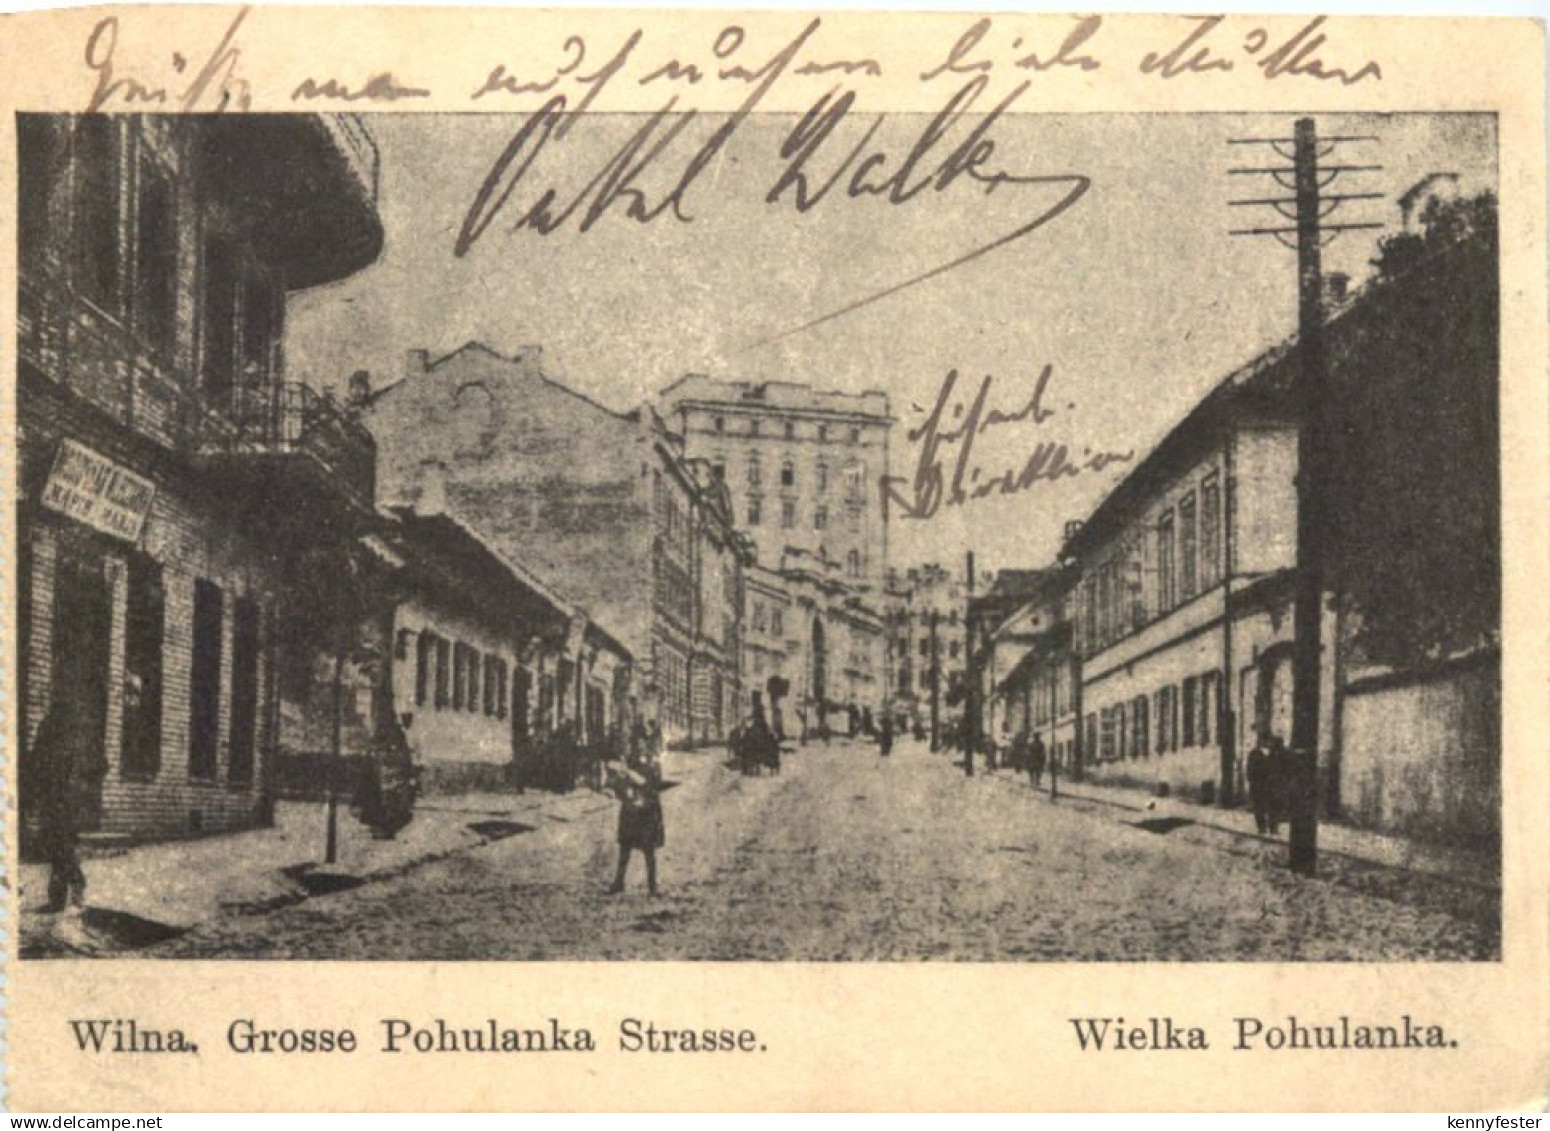 Grüße man auch unsere liebe Mutter
Onkel Walter
Eisenb.
Direktion
Wilna. Grosse Pohulanka Strasse.
Wielka Pohulanka.
www.delcampe.net
kennyfester